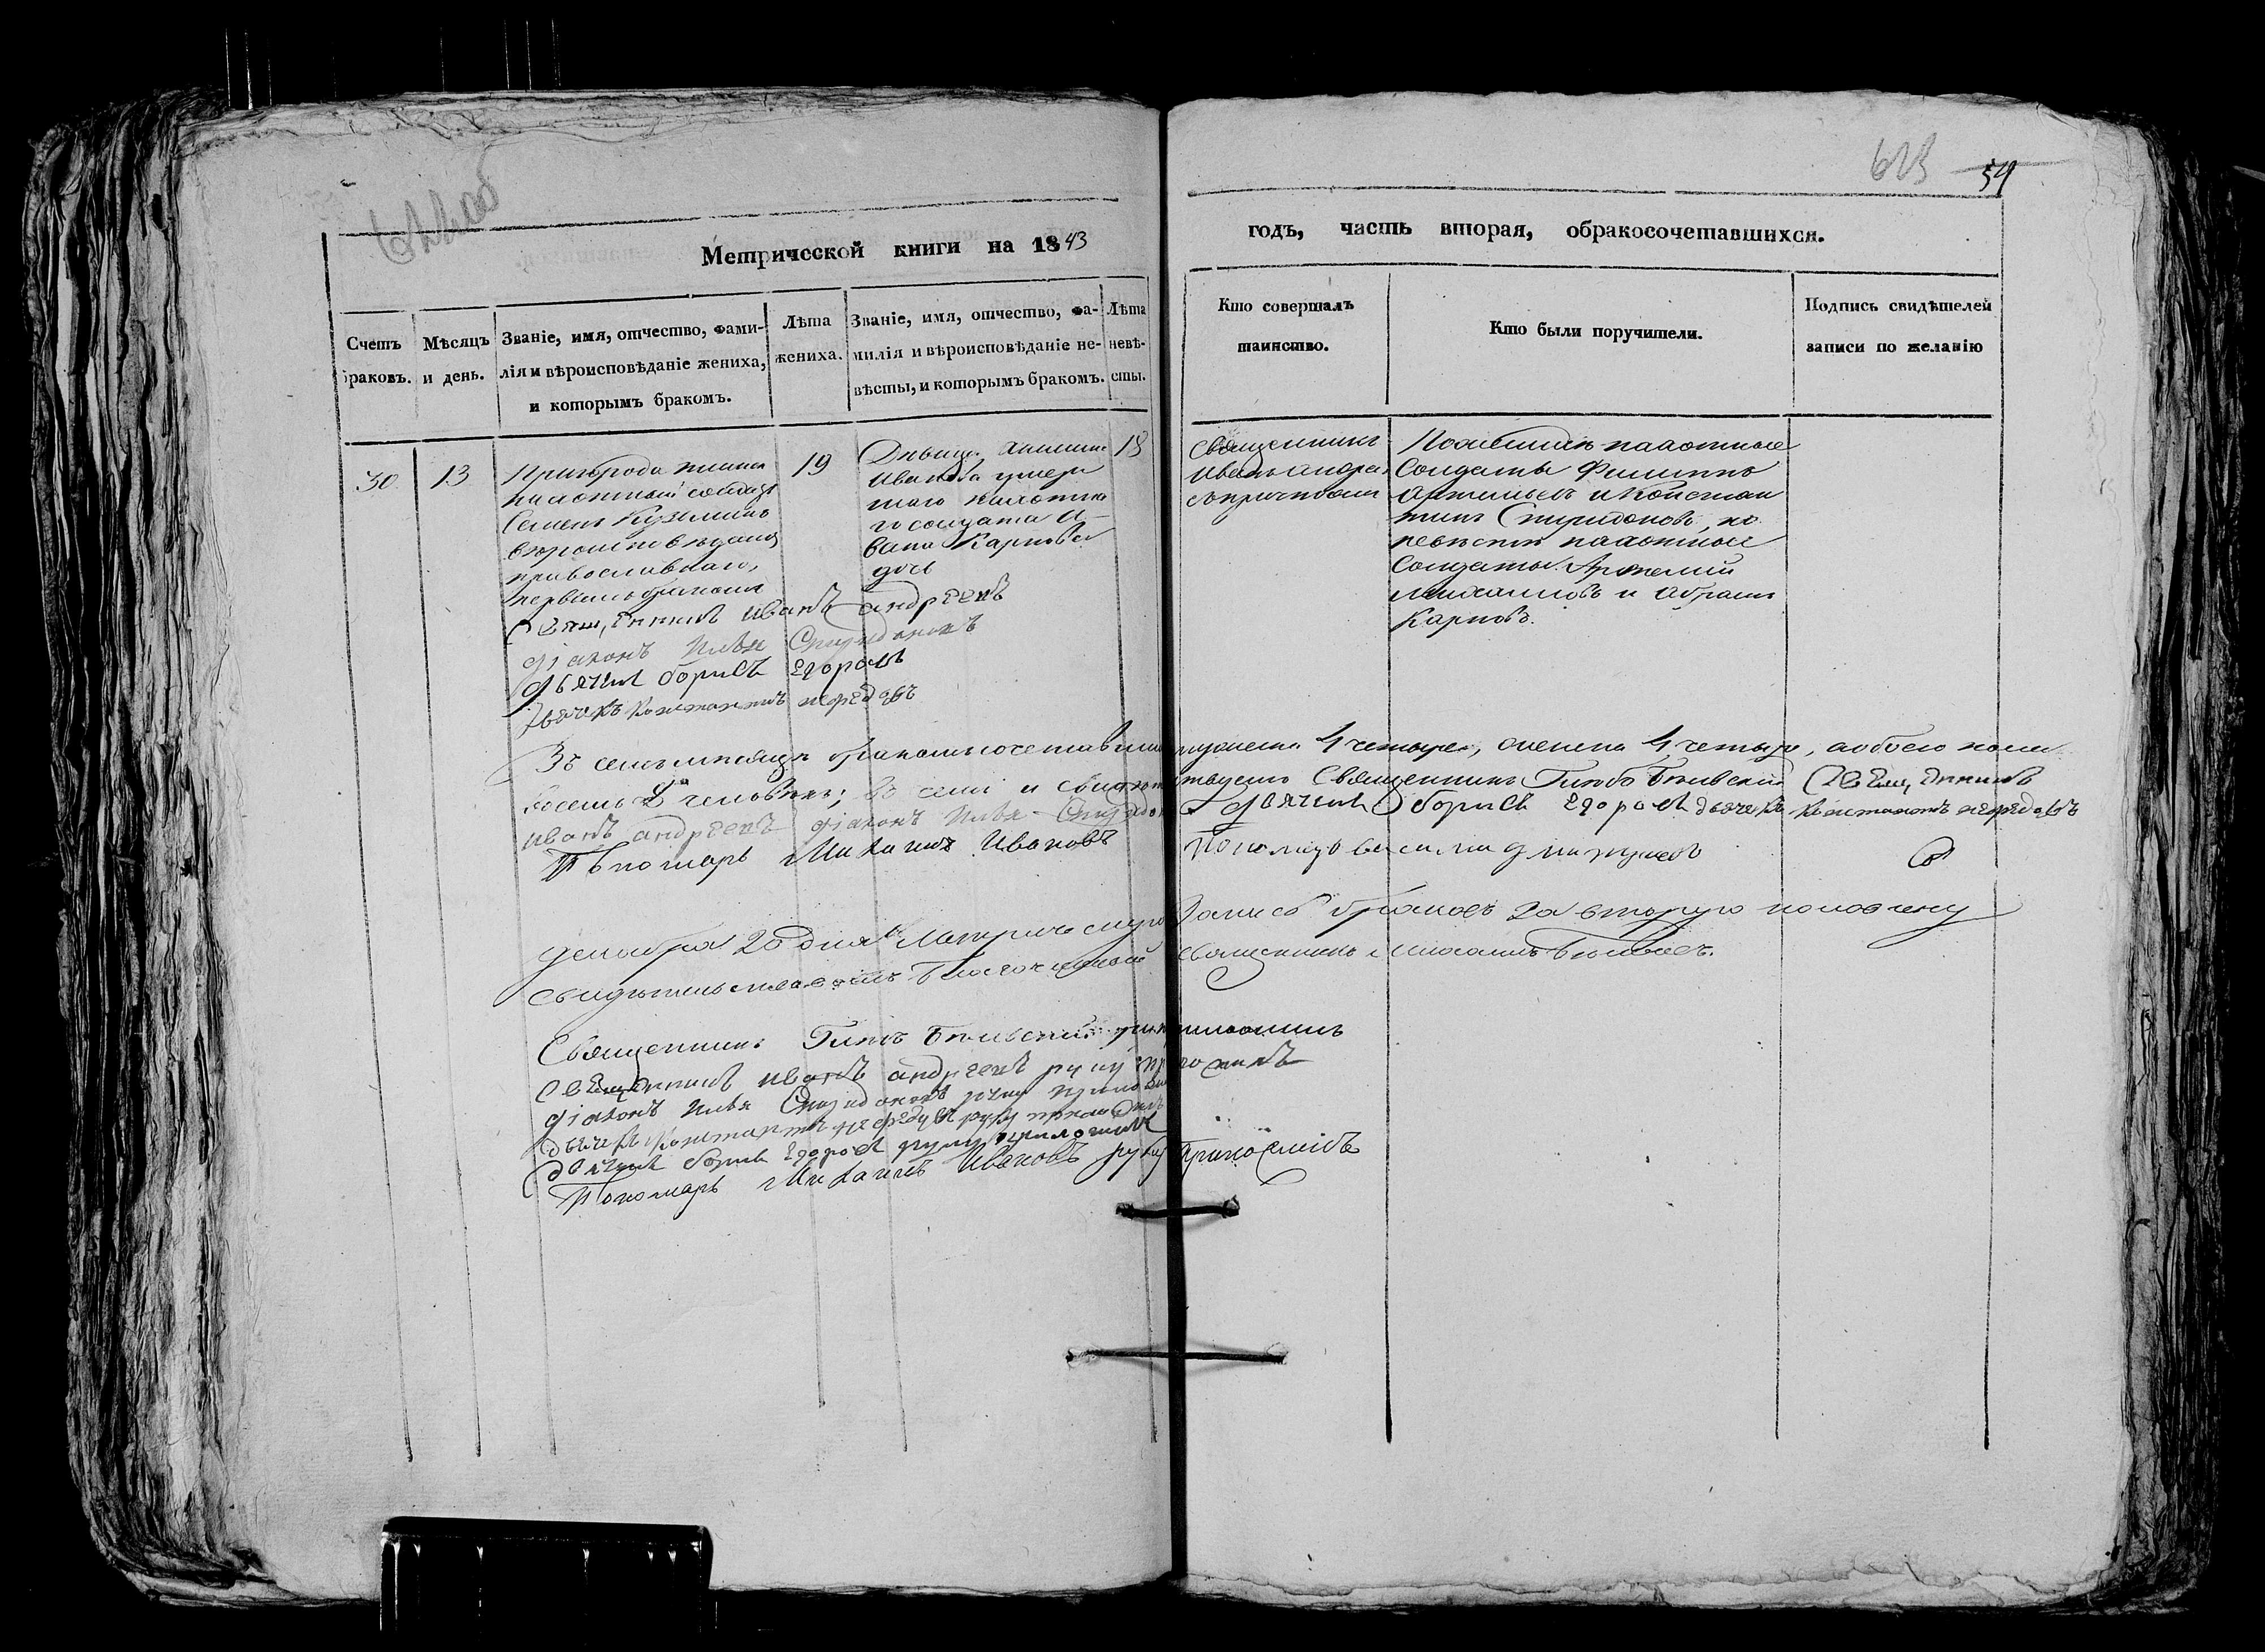 623 54
Метрической книги на 1843
годъ, часть вторая, обракосочетавшихся.
Счетъ браковъ.
Мѣсяцъ и день.
Званіе, имя, отчество, фами-
лія и вѣроисповѣданіе жениха,
и которымъ бракомъ.
Лѣта
жениха.
Званіе, имя, отчество, фа-
милія и вѣроисповѣданіе не-
вѣсты, и которымъ бракомъ.
Лѣта
невѣ-
сты.
Кто совершалъ
таинство.
Кто были поручители.
Подпись свидѣтелей
записи по желанію
30
13
Пригорода
пахотный солдатъ
Семенъ Кузьминъ
вѣроисповѣданія
православнаго,
первымъ бракомъ
19
Дѣвица
Иванова умер
шаго пахотна
го солдата И-
вана Карпова
дочь
18
Священникъ
Иванъ Андреевъ
съ причтомъ
По женихѣ пахотные
Солдаты Филиппъ
Артемьевъ и Констан
тинъ Спиридоновъ, по
невѣстѣ пахотные
Солдаты Артемий
Михаиловъ и Абрамъ
Карповъ.
Священникъ Иванъ Андреевъ
Діаконъ Илья Спиридоновъ
Дьячекъ Борисъ Егоровъ
Дьячекъ Константинъ Нефедовъ
Въ семъ мѣсяцѣ бракомъ сочетавшихся мужеска 4 четыре, женска 4 четыре, а обоего пола
восемь 8 человѣкъ; въ семъ и свидѣтельствуемъ Священникъ Глѣбъ Бѣльский Священникъ
Иванъ Андреевъ Діаконъ Илья Спиридоновъ Дьячекъ Борисъ Егоровъ Дьячекъ Константинъ Нефедовъ
Пономарь Михаилъ Ивановъ Пономарь
Декабря 20 дня Метрическую Запись браковъ за вторую половину
свидѣтельствовалъ Благочинный священникъ
Священникъ Глѣбъ Бѣльский руку приложилъ
Священникъ Иванъ Андреевъ руку приложилъ
Діаконъ Илья Спиридоновъ руку приложилъ
Дьячекъ Константинъ Нефедовъ руку приложилъ
Дьячекъ Борисъ Егоровъ руку приложилъ
Пономарь Михаилъ Ивановъ руку приложилъ